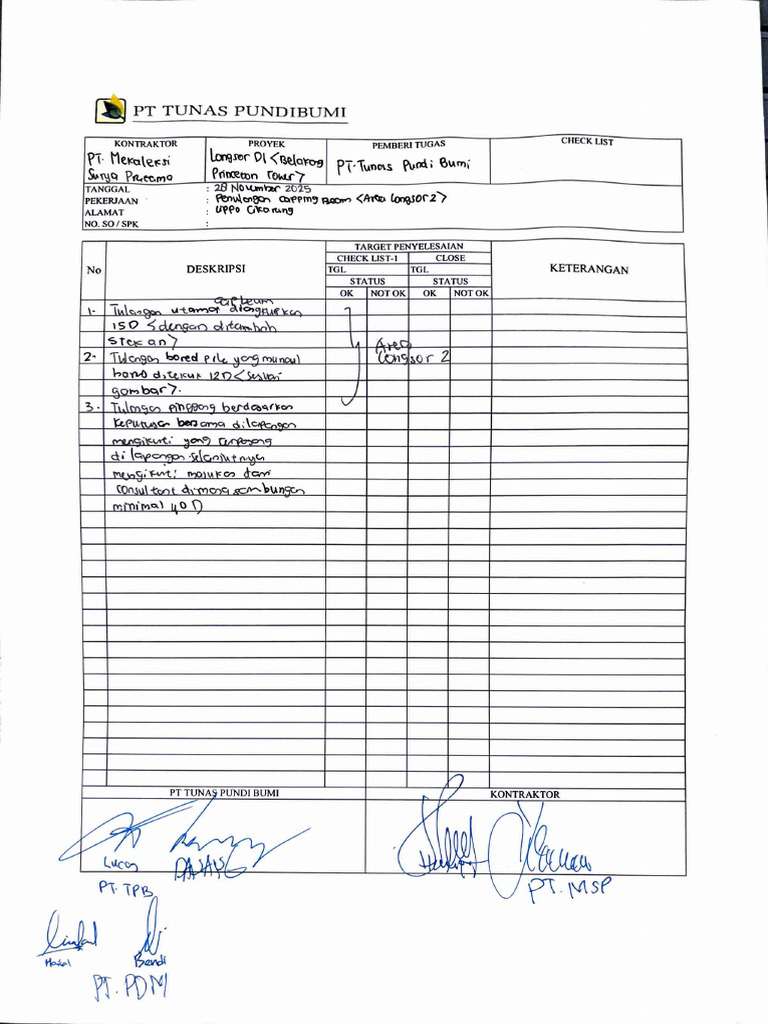 PT TUNAS PUNDIBUMI
KONTRAKTOR PROYEK PEMBERI TUGAS CHECK LIST
PT. Mekaleksi Surya Pratama
Longsor D1 <Belakang Princeton Tower>
PT. Tunas Pundi Bumi
TANGGAL : 28 November 2025
PEKERJAAN : Penulangan Capping Beam <Area Longsor 2>
ALAMAT : Lippo Cikarang
NO. SO / SPK :
No DESKRIPSI TARGET PENYELESAIAN KETERANGAN
CHECK LIST-1 CLOSE
TGL TGL
STATUS STATUS
OK NOT OK OK NOT OK
cap beam
1. Tulangan utama diangkurkan
15D <dengan ditambah
stekan>
2. Tulangan bored pile yang muncul
harus ditekuk 12D <sesuai
gambar>.
Area
Longsor 2
3. Tulangan pinggang berdasarkan
keputusan bersama dilapangan
mengikuti yang terpasang
di lapangan selanjutnya
mengikuti masukan dari
consultant dimana sambungan
minimal 40D
PT TUNAS PUNDI BUMI KONTRAKTOR
Lucas
PT. TPB
PT. MSP
Bendi
PT. PDM